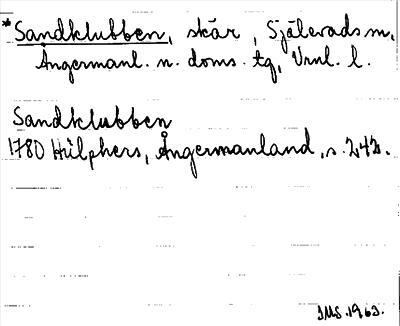 *Sandklubben, skär, Själevads sn,
Ångermanl. n. doms. tg, Vrnl. l.
Sandklubben
1780 Hülphers, Ångermanland, s. 242.
IMS. 1963.